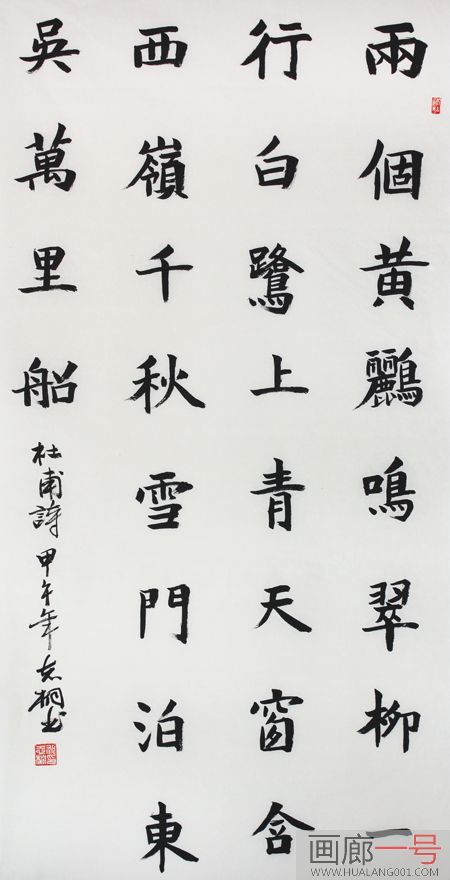 兩個黄鸝鳴翠柳一
行白鷺上青天窗含
西嶺千秋雪門泊東
吳萬里船
杜甫詩甲午年志桐书
画廊一号
WWW.HUALANG001.COM